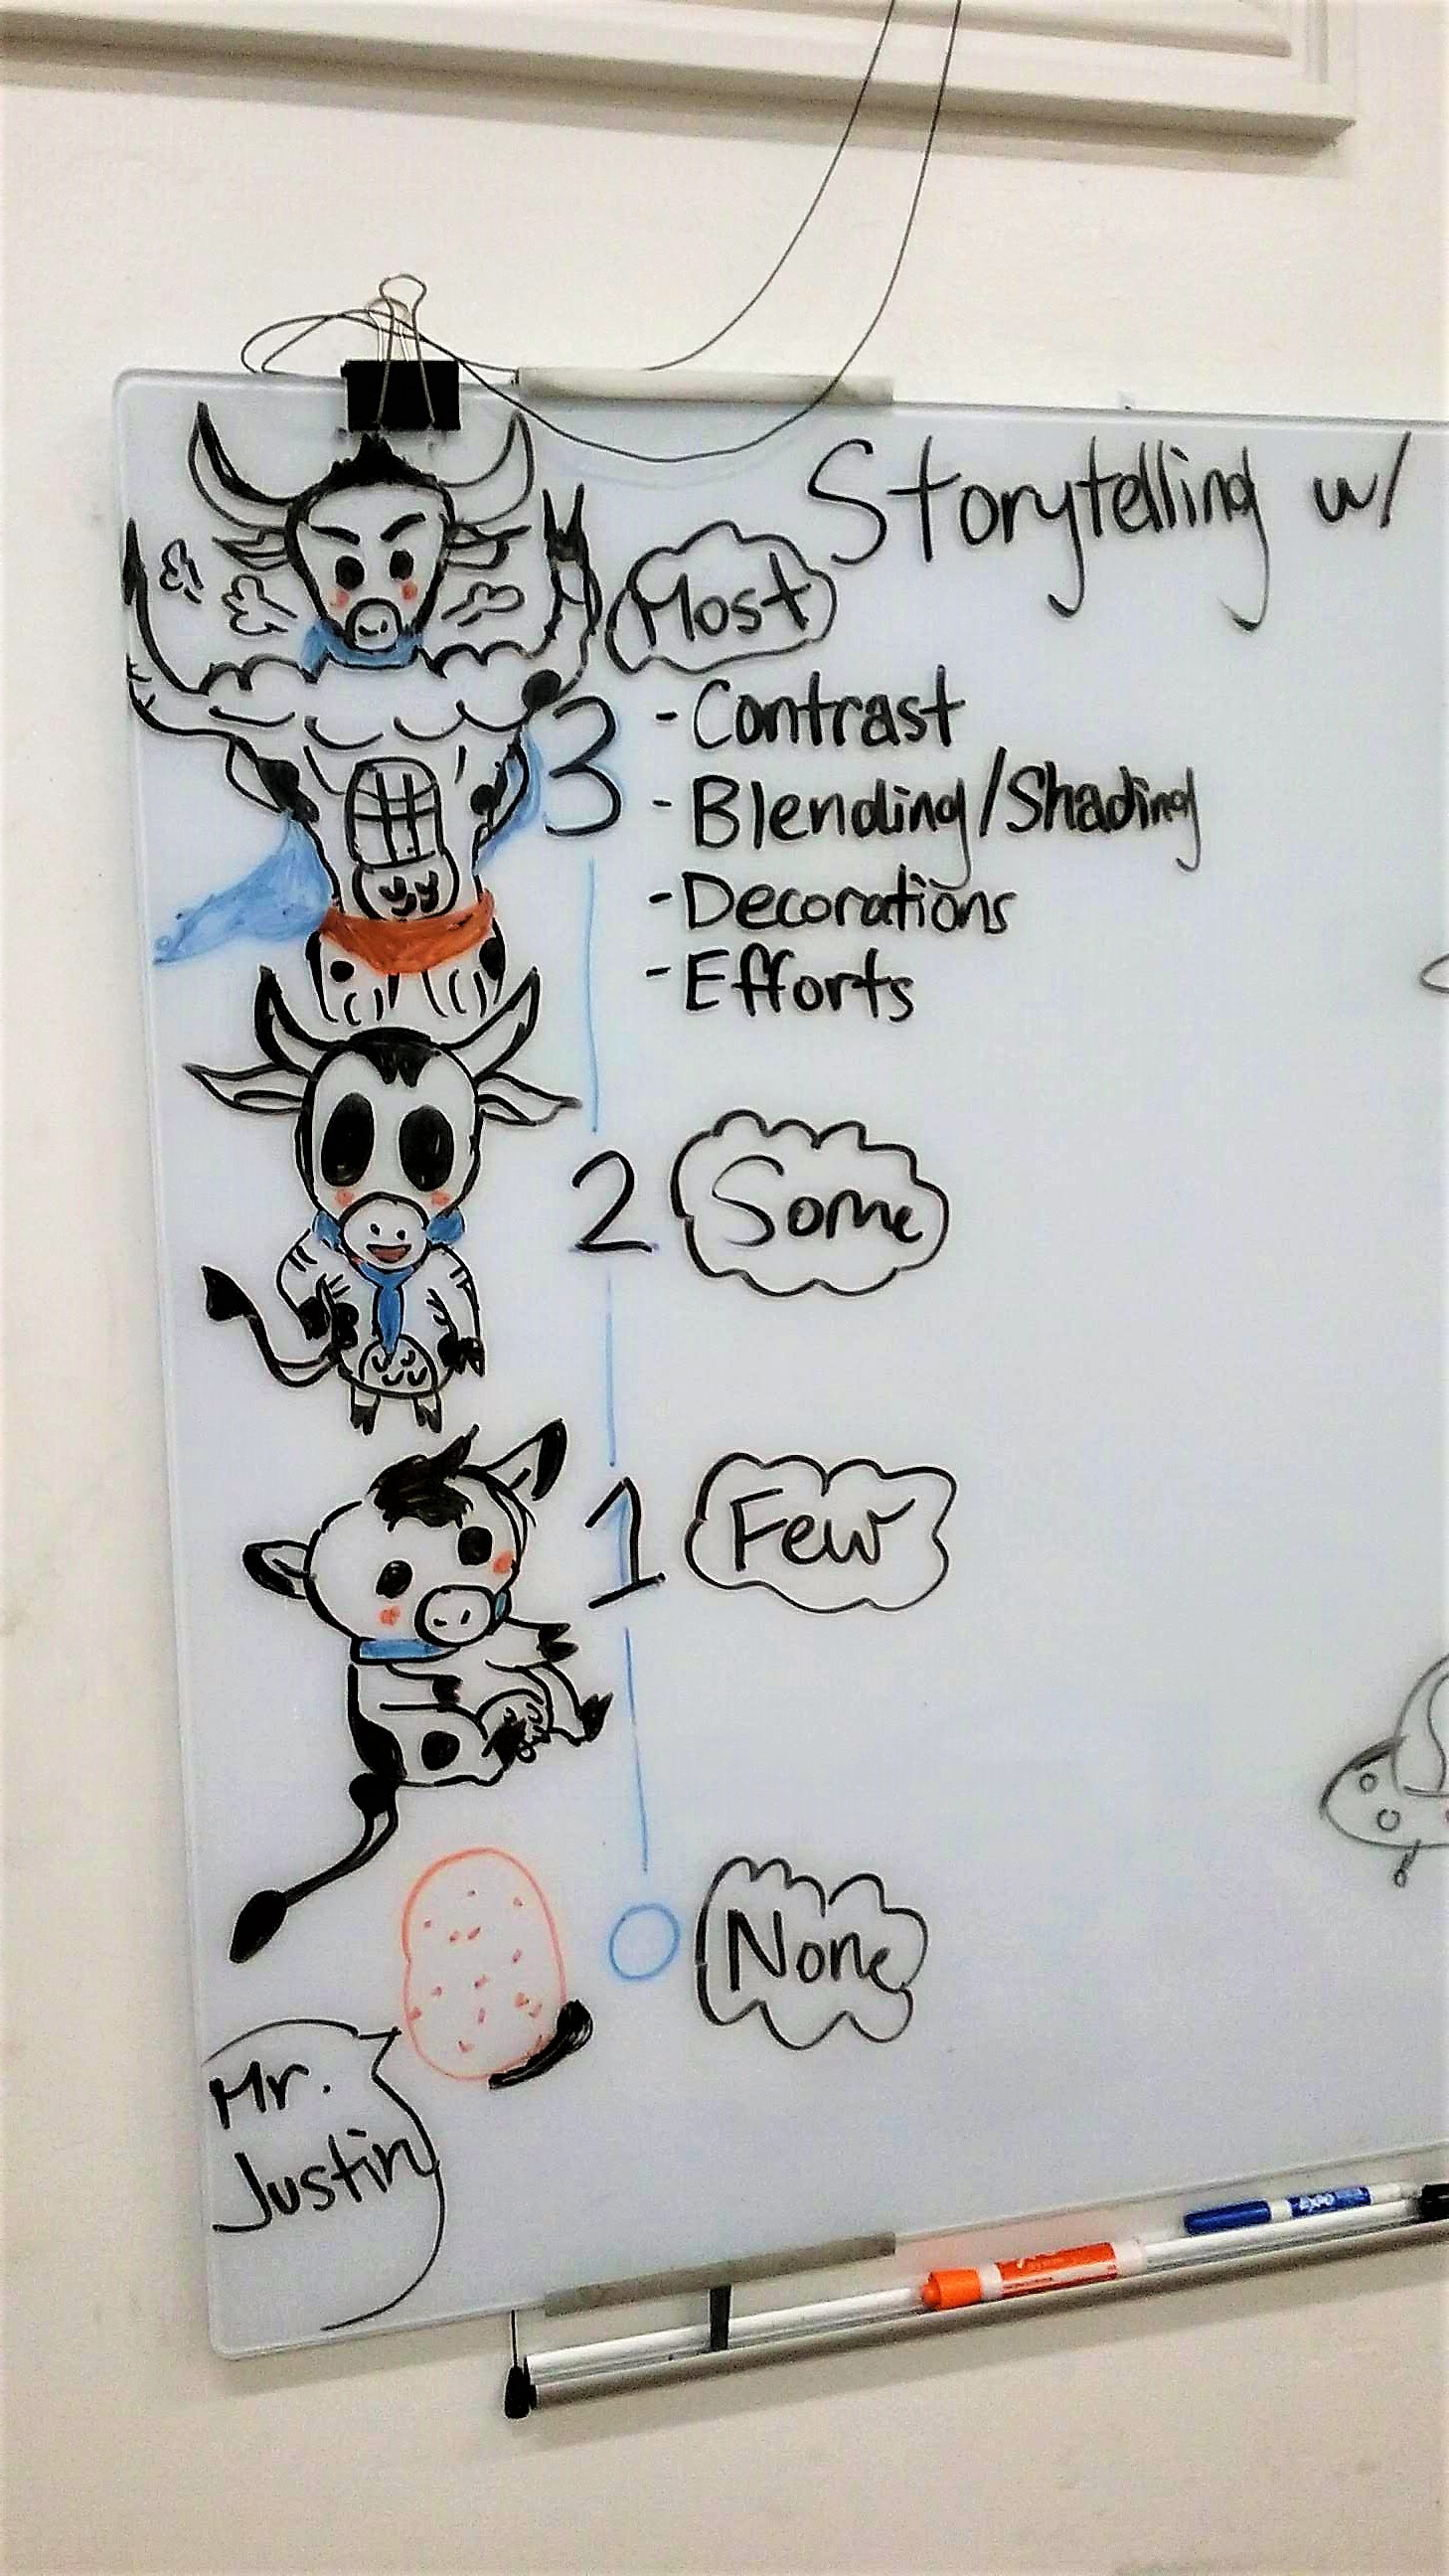 Storytelling w/
Most
3
- Contrast
- Blending/Shading
- Decorations
- Efforts
2 Some
1 Few
0 None
Mr.
Justin
EXPO